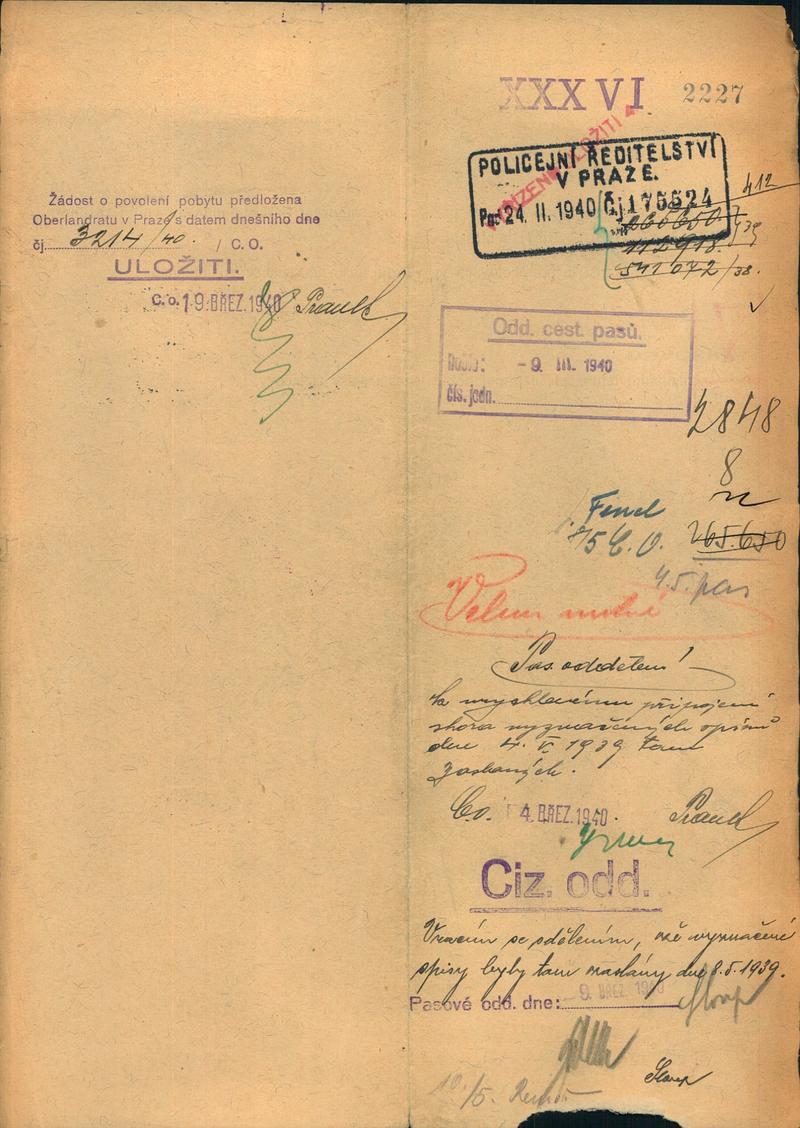 Žádost o povolení pobytu předložena
Oberlandratu v Praze s datem dnešního dne
čj. 3214/40. / C. O.
ULOŽITI.
C. o. 19. BŘEZ. 1940
XXXVI 2227
POLICEJNÍ ŘEDITELSTVÍ
V PRAZE.
24. II. 1940 Čj 175524
412
112918/39
541072/38.
Odd. cest. pasů.
Došlo: - 9. III. 1940
čís. jedn.
2848
8
C. O.
265.650
45. pas
Velmi nutné
Pas. oddělení!
K připojení
shora vyznačených spisů
dne 4. V. 1939 tam
zaslaných.
C.o. 4. BŘEZ. 1940.
Ciz. odd.
Vracím se sdělením, že vyznačené
spisy byly tam zaslány dne 8.5.1939.
Pasové odd. dne: - 9. BŘEZ. 1940